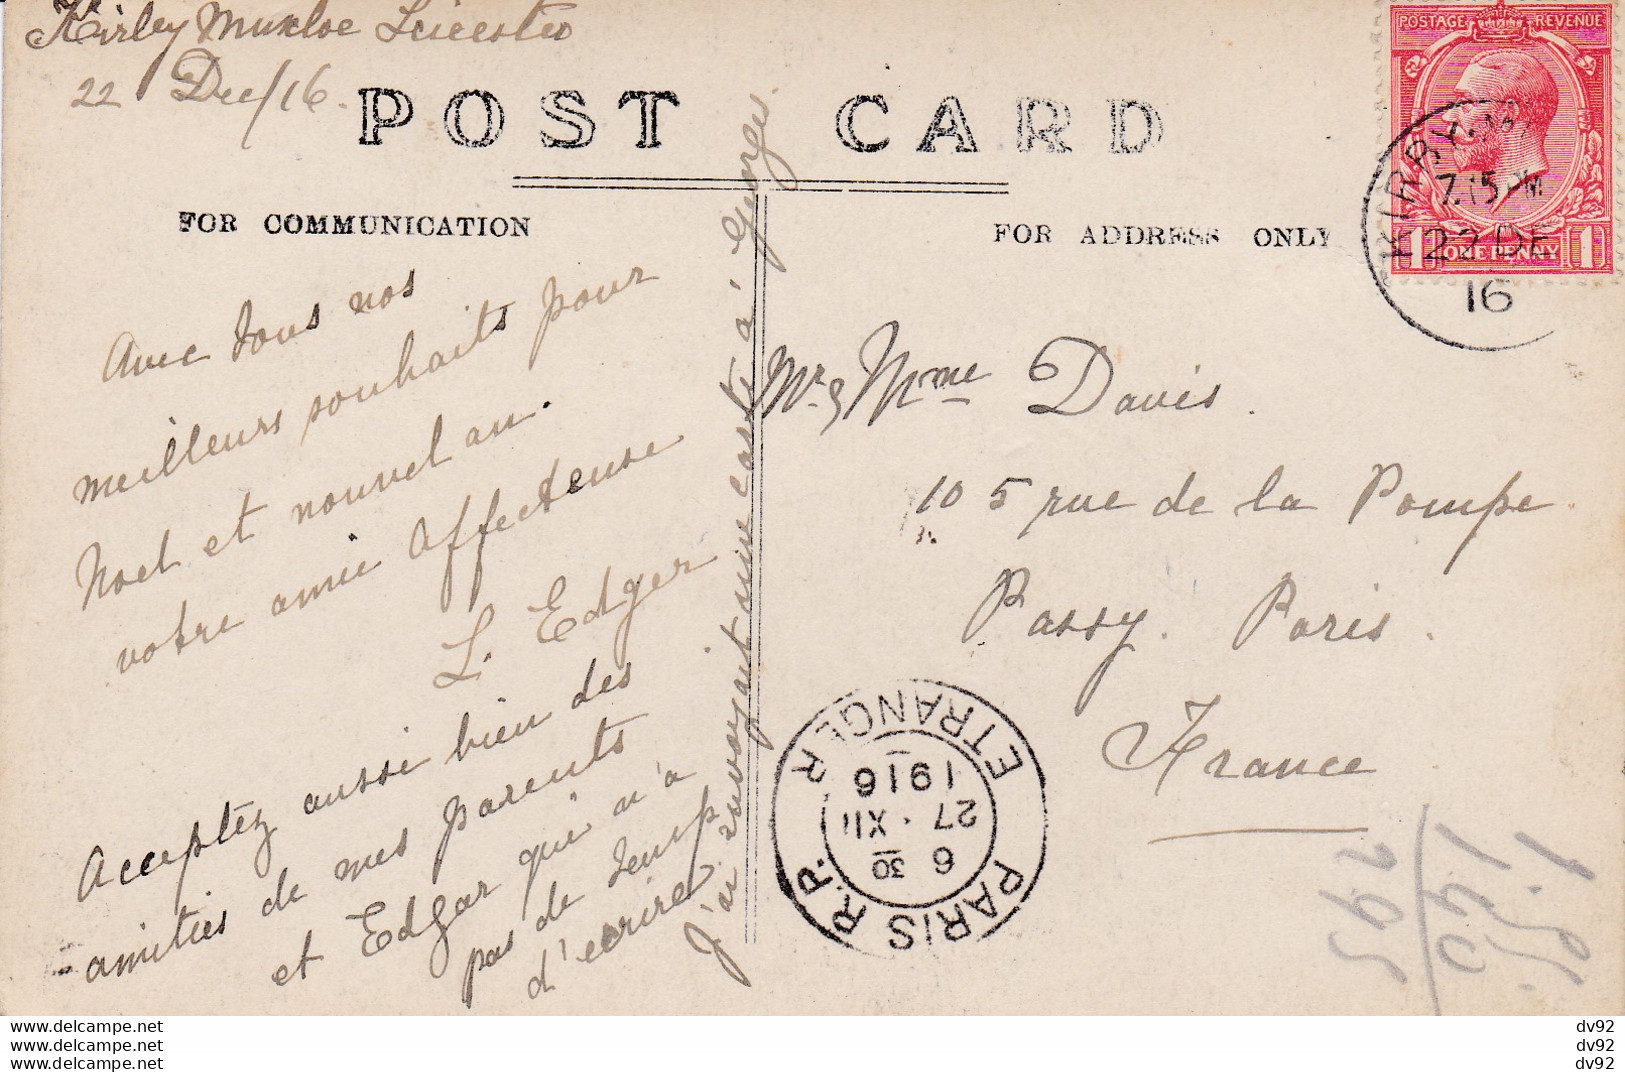 Kirby Muxloe Leicester
22 Dec/16.
POST CARD
FOR COMMUNICATION
FOR ADDRESS ONLY
POSTAGE REVENUE
1 ONE PENNY 1
KIRBY
7.15 PM
22 DE
16
Avec tous nos
meilleurs souhaits pour
Noel et nouvel an.
votre amie affecteuse
L. Edger
Acceptez aussi bien des
amitiés de mes parents
et Edgar qui n'a
pas de temps
d'ecrire
J'ai envoyait une carte á Georges.
Mr & Mme Davis.
105 rue de la Pompe.
Passy. Paris.
France
PARIS R.P. ETRANGER
6 30
27 · XII
1916
1.5.
140
295
www.delcampe.net
www.delcampe.net
www.delcampe.net
dv92
dv92
dv92